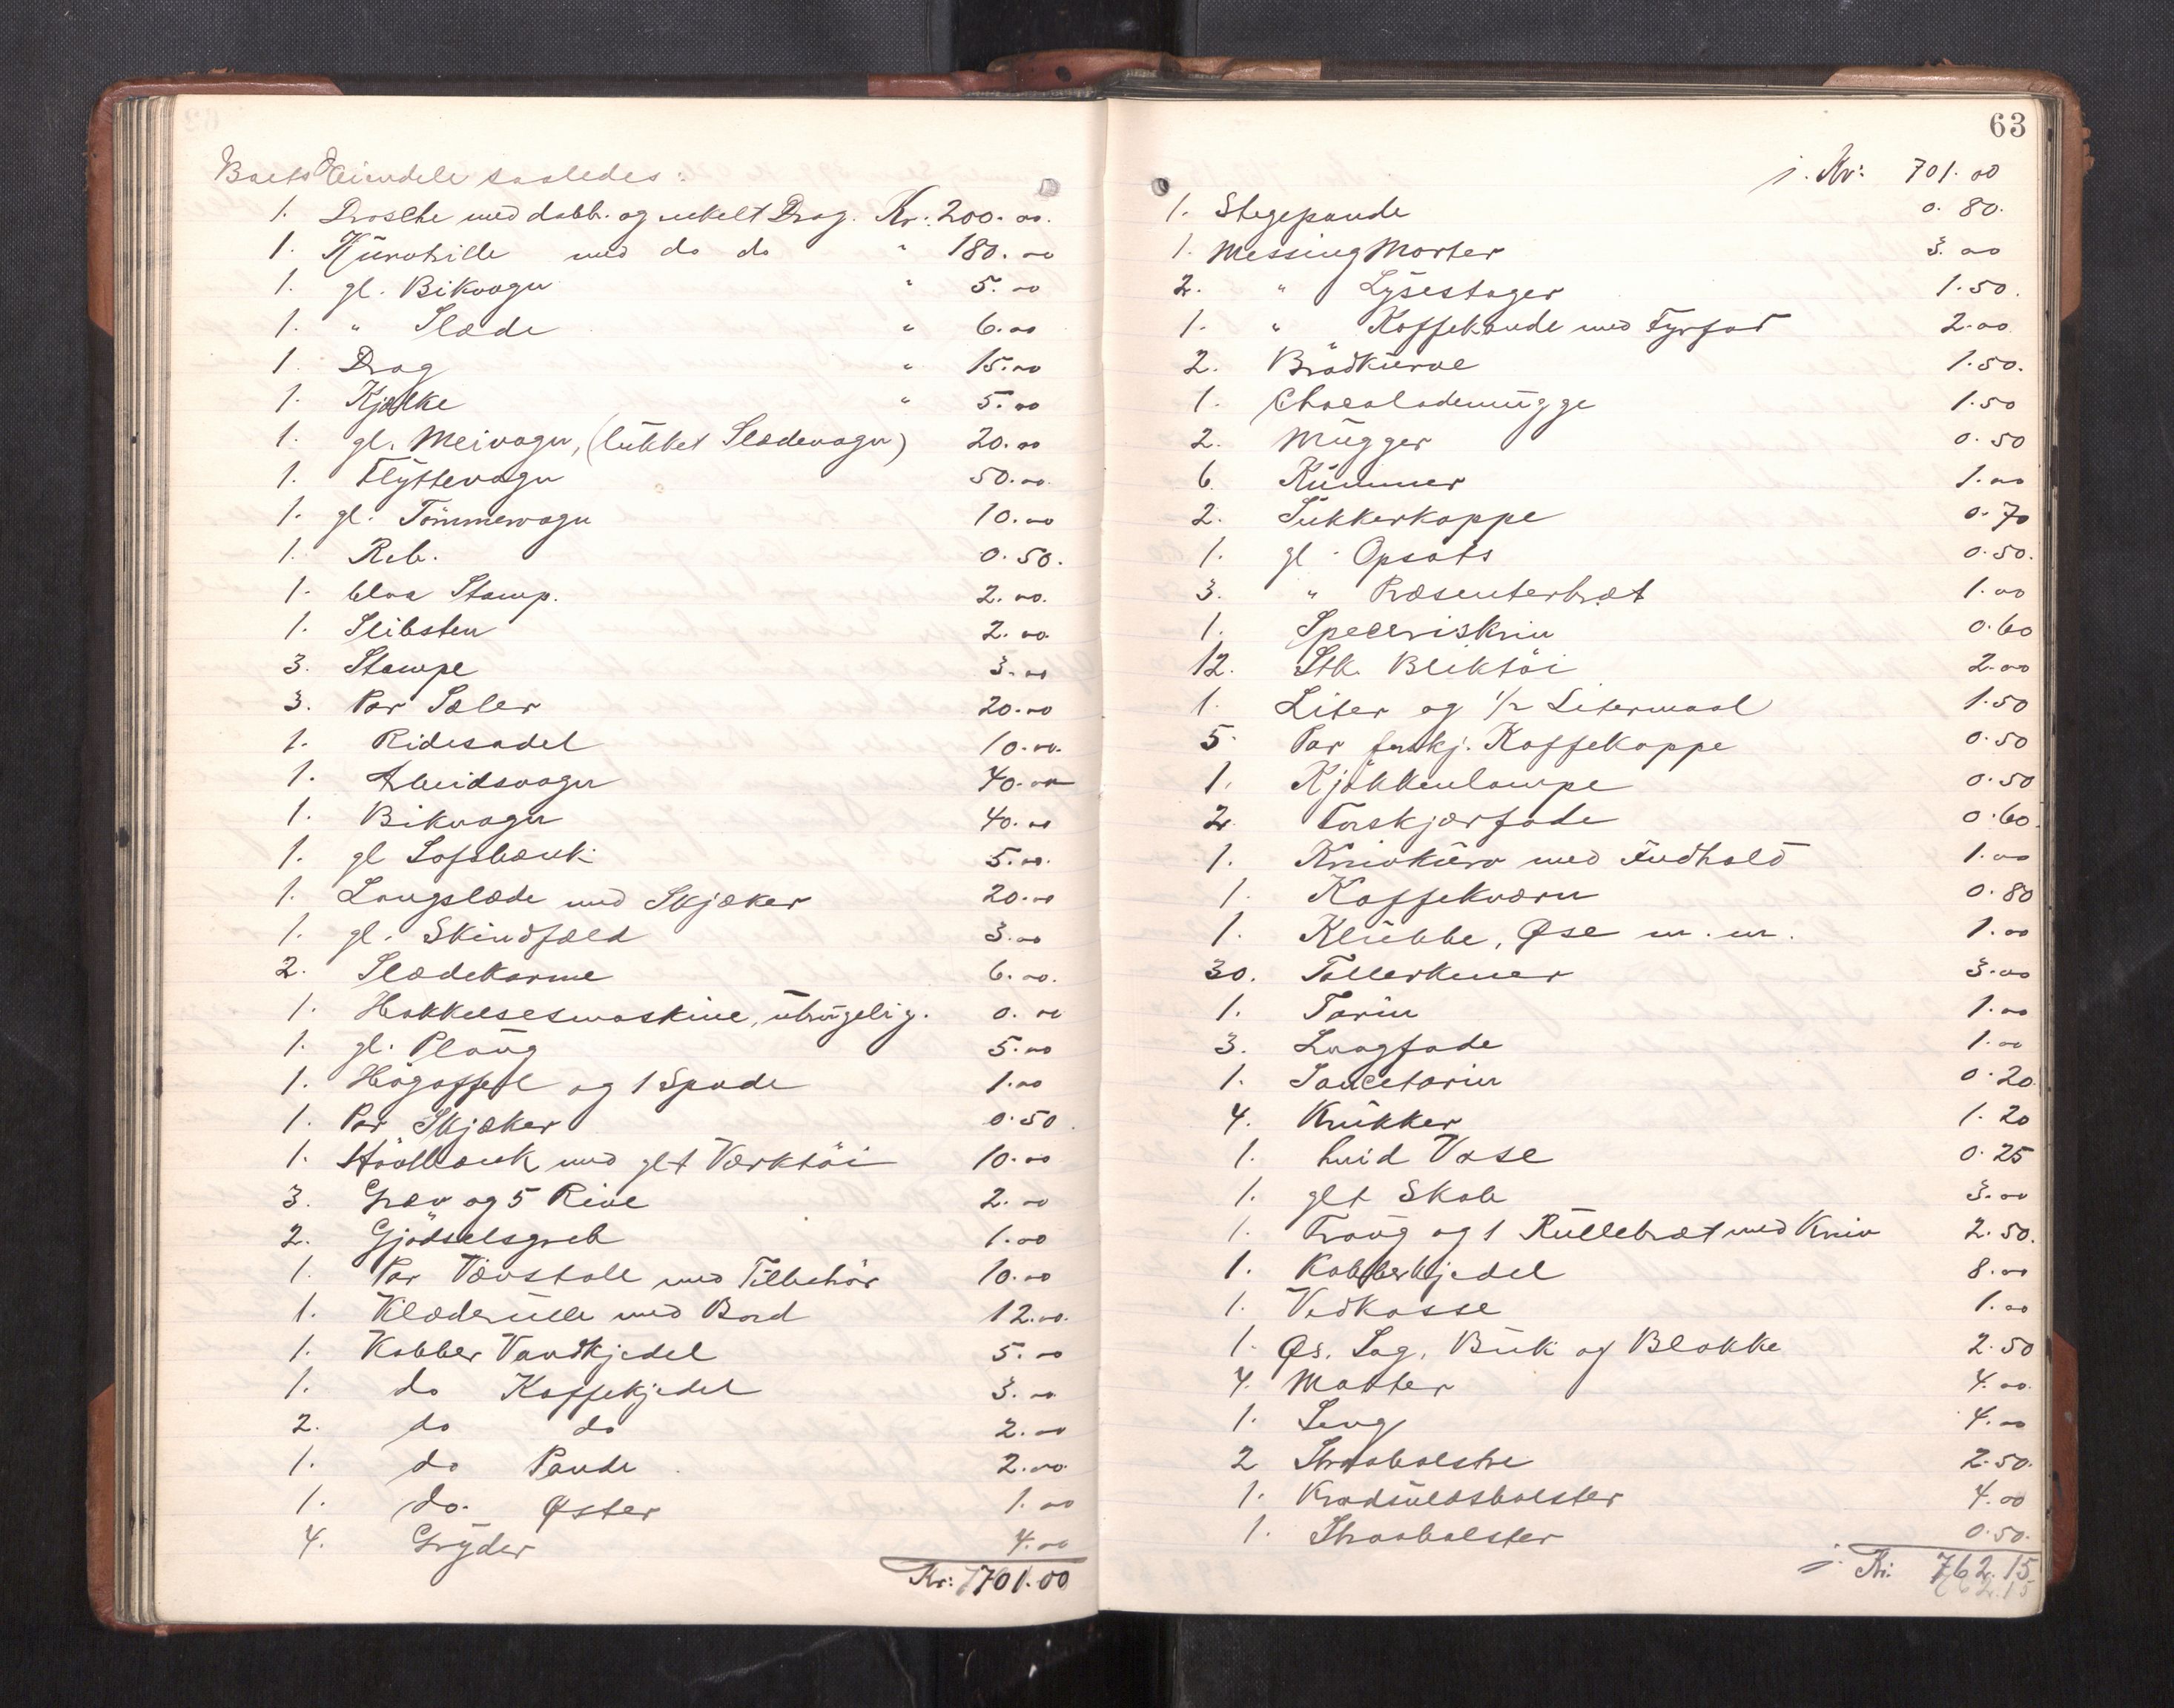 Boets Eiendele saaledes:
1. Drosche med dobb. og enkelt Drag. Kr: 200.00.
1. Kürvhille med do do " 180.00
1. gl. Bikvogn " 5.00
1. " Slæde " 6.00
1. Drag " 15.00
1. Kjælke " 5.00
1. gl. Meivogn, (lukket Slædevogn) 20.00
1. Flÿttevogn 50.00.
1. gl. Tömmervogn 10.00
1. Reb. 0.50.
1. blaa Stamp. 2.00.
1. Slibsten 2.00.
3. Stampe 3.00
3. Par Sæler 20.00
1. Ridesadel 10.00.
1. Arbeidsvogn 40.00
1. Bikvogn 40.00
1. gl Sofabænk 5.00.
1. Langslæde med Skjæker 20.00
1. gl. Skindfæld 3.00
2. Slædekarme 6.00.
1. Hakkelsesmaskine, übrügelig. 0.00
1. gl. Ploüg 5.00
1. Högaffel og 1 Spade 1.00
1. Par Skjæker 0.50.
1. Hövlbænk med glt Værktöi 10.00
3. Græv og 5 Rive 2.00
2. Gjödselsgreb 1.00
1. Par Vævstole med Tilbehör 10.00
1. Klæderülle med Bord 12.00.
1. Kobber Vandkjedel 5.00
1. do Kaffekjedel 3.00
2. do do 2.00
1. do Pande. 2.00
1. do. Øster 1.00
4. Grÿder 4.00
Kr: 701.00
63
j. Kr: 701.00
1. Stegepande 0.80.
1. Messing Morter 3.00
2. " Lÿsestager 1.50.
1. " Kaffekande med Fyrfad 2.00
2. Brödkürve 1.50.
1. Chocolademügge 1.50
2. Mügger 0.50
6 Kümmer 1.00
2. Sükkerkoppe 0.70
1. gl. Opsats 0.50.
3. " Præsenterbræt 1.00
1. Speceriskrin 0.60
12. Stk. Bliktöi 2.00
1. Liter og 1/2 Litermaal 1.50
5. Par forskj. Kaffekoppe 0.50
1. Kjökkenlampe 0.50
2. Forskjærfade 0.60.
1. Knivkürv med Indhold 1.00
1. Kaffekværn 0.80
1. Klübbe, Øse m.m. 1.00
30. Tallerkener 3.00
1. Tarin 1.00
3. Langfade 1.00
1. Saucetarin 0.20
4. Krükker 1.20
1. hvid Vase 0.25
1. glt Skab 3.00
1. Traüg og 1 Rüllebræt med Kniv 2.50.
1. Kobberkjedel 8.00
1. Vedkasse 1.00
1. Øs. Sag, Bük og Blokke 2.50
4. Matter 4.00.
1. Seng 4.00
2 Straabolstre 2.50.
1. Kradsüldsbolster 4.00
1. Straabolster 0.50.
j. Kr: 762.15
762.15